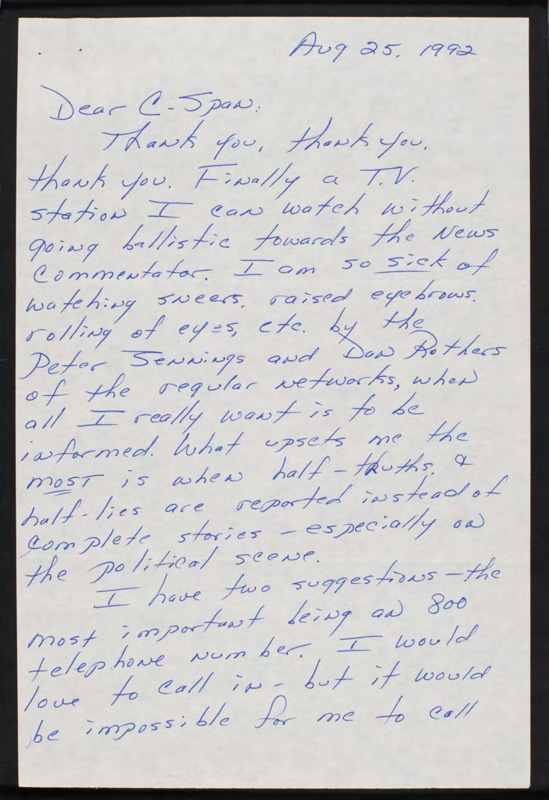 Aug 25, 1992
Dear C-Span:
Thank you, thank you,
thank you. Finally a T.V.
station I can watch without
going ballistic towards the News
Commentator. I am so sick of
watching sneers, raised eyebrows,
rolling of eyes, etc. by the
Peter Jennings and Dan Rathers
of the regular networks, when
all I really want is to be
informed. What upsets me the
most is when half-truths, &
half-lies are reported instead of
complete stories - especially on
the political scene.
I have two suggestions - the
most important being an 800
telephone number. I would
love to call in - but it would
be impossible for me to call